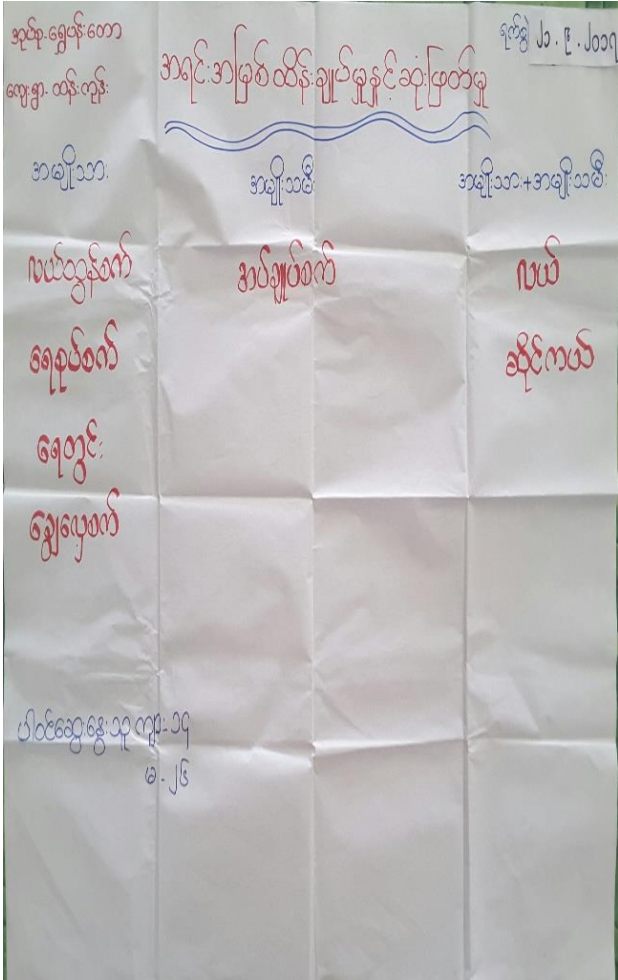 အုပ်စု-ရွှေပန်းတော
ကျေးရွာ-ထန်းကုန်း
အရင်းအမြစ်ထိန်းချုပ်မှုနှင့်ဆုံးဖြတ်မှု
ရက်စွဲ ၂၁.၉.၂၀၁၇
အမျိုးသား အမျိုးသမီး အမျိုးသား+အမျိုးသမီး
လယ်ထွန်စက် အပ်ချုပ်စက် လယ်
ရေစုပ်စက် ဆိုင်ကယ်
ရေတွင်း
ခြွေလှေ့စက်
ပါဝင်ဆွေးနွေးသူ ကျား-၁၄
မ-၂၆